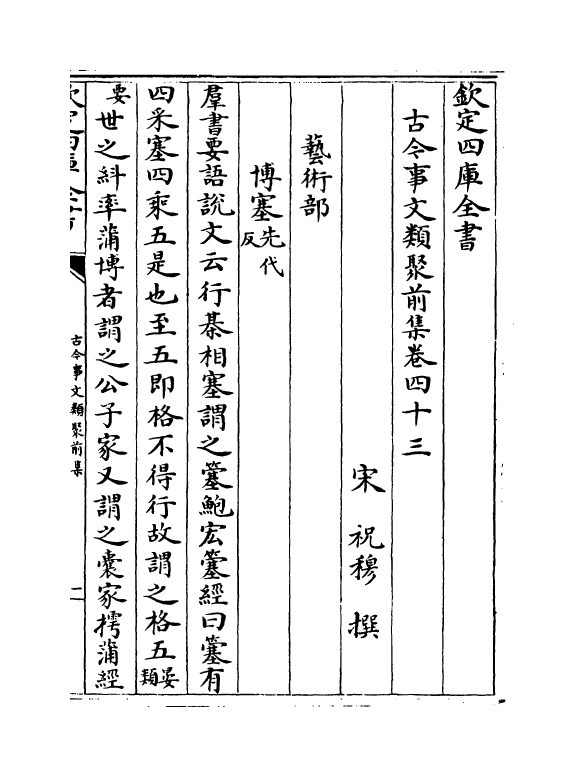 欽定四庫全書
古今事文類聚前集卷四十三
宋 祝穆 撰
藝術部
博塞先代反
羣書要語說文云行棊相塞謂之簺鮑宏簺經曰簺有
四采塞四乘五是也至五即格不得行故謂之格五晏類
要世之紏率蒲博者謂之公子家又謂之囊家樗蒲經
欽定四庫全書
古今事文類聚前集
二